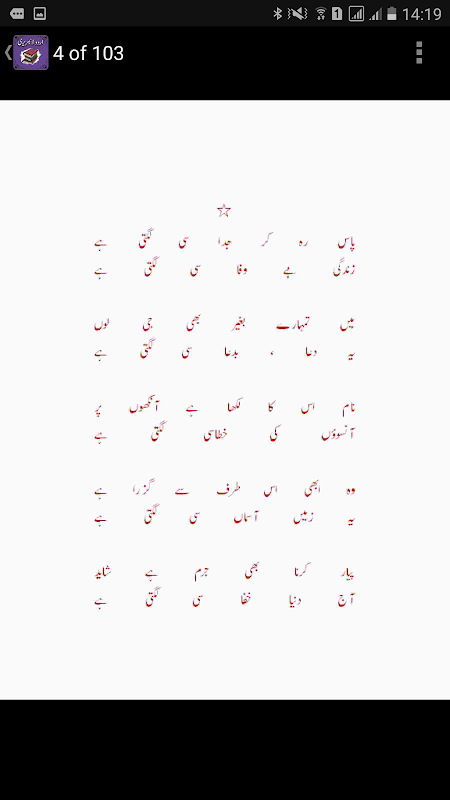 14:19
اردو لائبریری
4 of 103
پاس رہ کر جدا سی لگتی ہے
زندگی بے وفا سی لگتی ہے
میں تمہارے بغیر بھی جی لوں
یہ دعا ، بدعا سی لگتی ہے
نام اس کا لکھا ہے آنکھوں پر
آنسوؤں کی خطاسی لگتی ہے
وہ ابھی اس طرف سے گزرا ہے
یہ زمیں آسماں سی لگتی ہے
پیار کرنا بھی جرم ہے شاید
آج دنیا خفا سی لگتی ہے